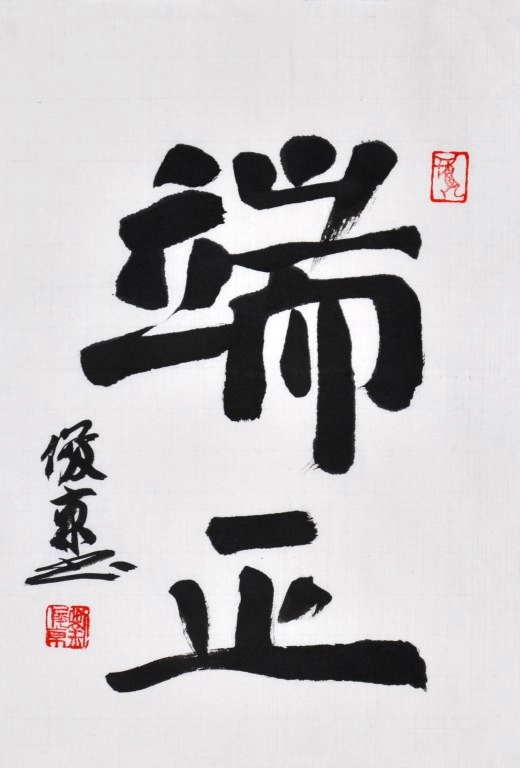 端正
俊東